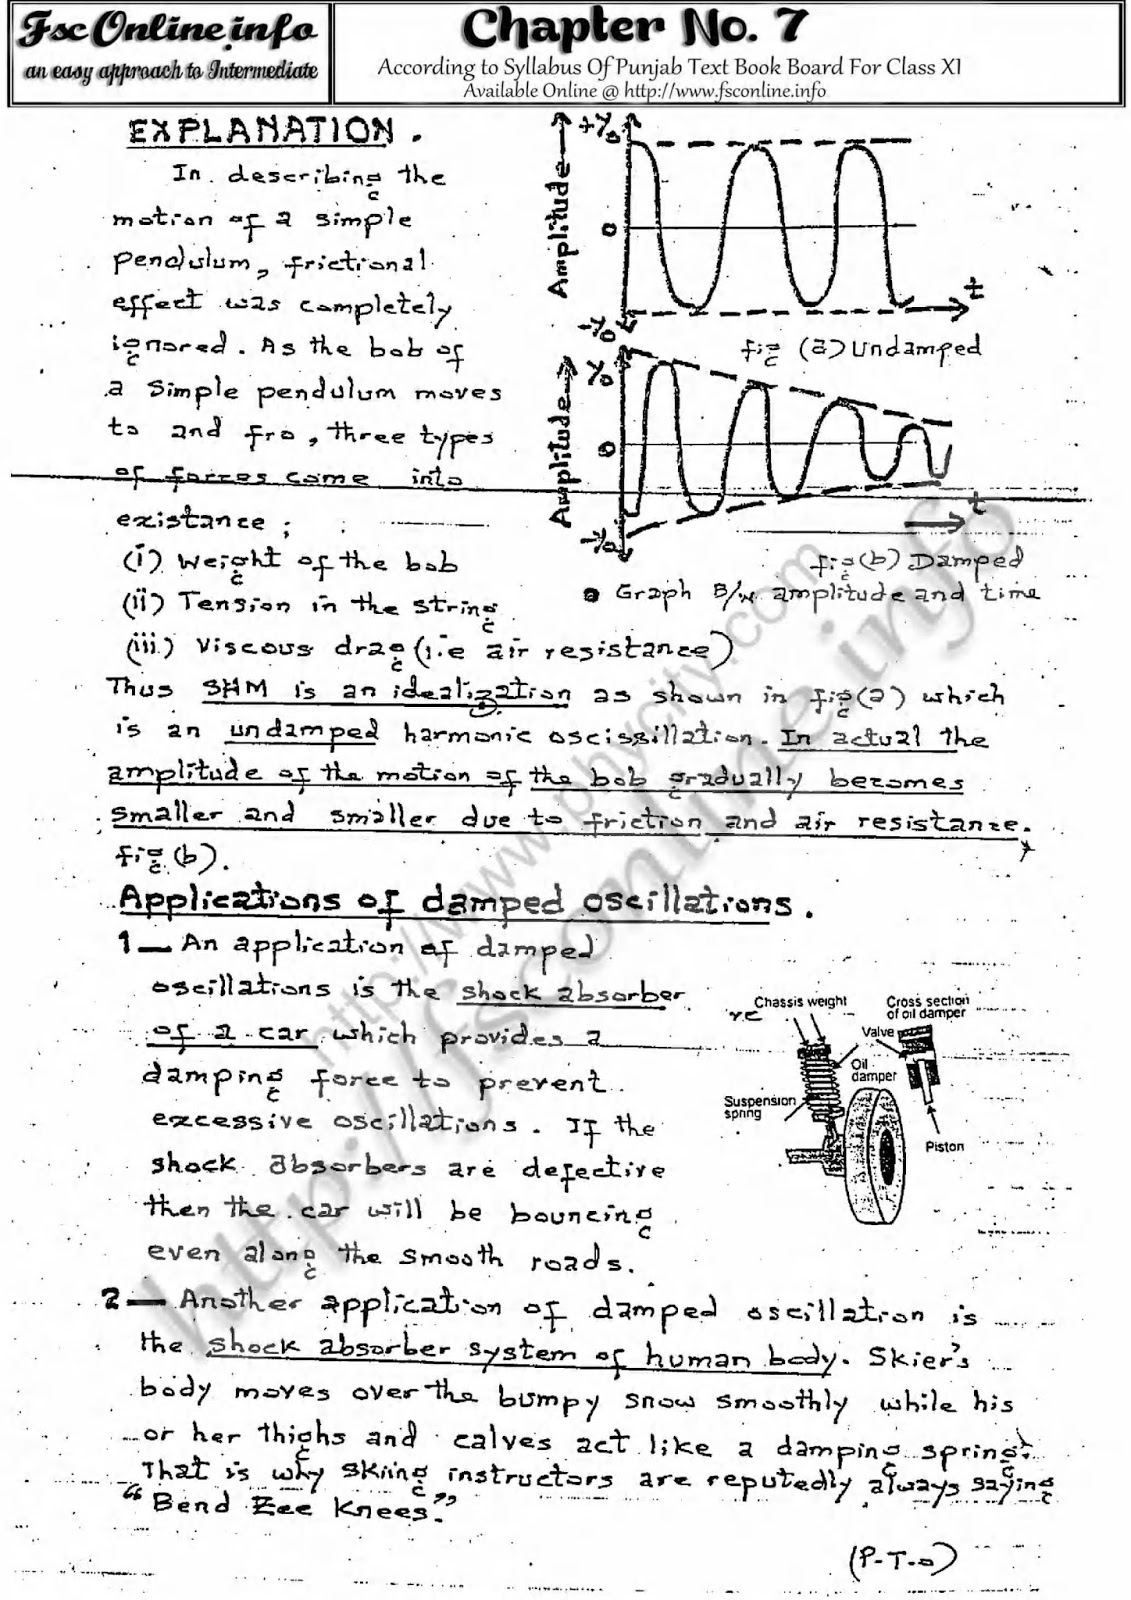 Fsc Online.info
an easy approach to Intermediate
Chapter No. 7
According to Syllabus Of Punjab Text Book Board For Class XI
Available Online @ http://www.fsconline.info
EXPLANATION.
In describing the
motion of a simple
pendulum, frictional
effect was completely
ignored. As the bob of
a Simple pendulum moves
to and fro, three types
of forces come into
existance;
(i) Weight of the bob
(ii) Tension in the string
(iii) Viscous drag (i.e air resistance)
Amplitude
+Y₀
0
-Y₀
t
fig (a) Undamped
Amplitude
Y₀
0
-Y₀
t
fig (b) Damped
Graph B/w amplitude and time
Thus SHM is an idealization as shown in fig (a) which
is an undamped harmonic oscissillation. In actual the
amplitude of the motion of the bob gradually becomes
smaller and smaller due to friction and air resistance.
fig (b).
Applications of damped oscillations.
1— An application of damped
oscillations is the shock absorber
of a car which provides a
damping force to prevent
excessive oscillations. If the
shock absorbers are defective
then the car will be bouncing
even along the smooth roads.
Chassis weight
Cross section
of oil damper
Valve
Oil
damper
Suspension
spring
Piston
2— Another application of damped oscillation is
the shock absorber system of human body. Skier's
body moves over the bumpy snow smoothly while his
or her thighs and calves act like a damping spring.
That is why skiing instructors are reputedly always saying
"Bend Zee Knees."
(P-T-o)
http://www.phycity.com
http://fsconline.info